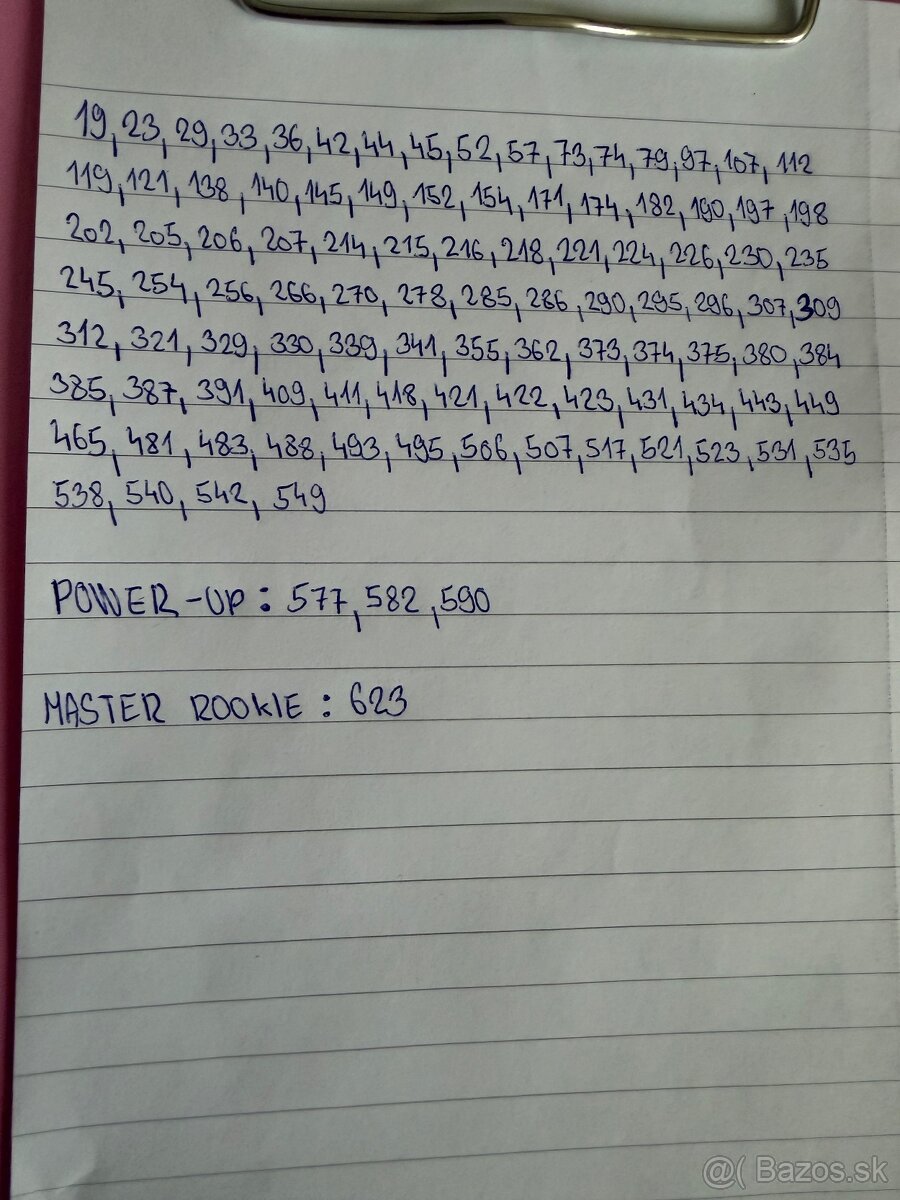 19, 23, 29, 33, 36, 42, 44, 45, 52, 57, 73, 74, 79, 97, 107, 112
119, 121, 138, 140, 145, 149, 152, 154, 171, 174, 182, 190, 197, 198
202, 205, 206, 207, 214, 215, 216, 218, 221, 224, 226, 230, 235
245, 254, 256, 266, 270, 278, 285, 286, 290, 295, 296, 307, 309
312, 321, 329, 330, 339, 341, 355, 362, 373, 374, 375, 380, 384
385, 387, 391, 409, 411, 418, 421, 422, 423, 431, 434, 443, 449
465, 481, 483, 488, 493, 495, 506, 507, 517, 521, 523, 531, 535
538, 540, 542, 549
POWER-UP: 577, 582, 590
MASTER ROOKIE: 623
@( Bazos.sk